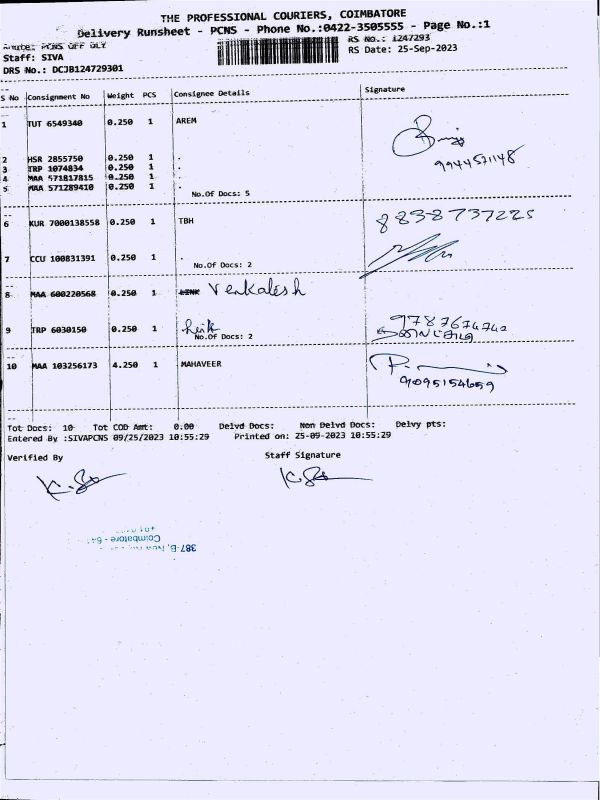 THE PROFESSIONAL COURIERS, COIMBATORE
Delivery Runsheet - PCNS - Phone No.:0422-3505555 - Page No.:1
Route: PCNS OFF DLY
RS No.: 1247293
Staff: SIVA
RS Date: 25-Sep-2023
DRS No.: DCJB124729301
S No Consignment No Weight PCS Consignee Details Signature
1 TUT 6549340 0.250 1 AREM
9944571148
2 HSR 2855750 0.250 1 .
3 TRP 1074834 0.250 1 .
4 MAA 571817815 0.250 1 .
5 MAA 571289410 0.250 1 .
No.Of Docs: 5
6 KUR 7000138558 0.250 1 TBH 8838737225
7 CCU 100831391 0.250 1 .
No.Of Docs: 2
8 MAA 600220568 0.250 1 LINK Venkatesh
9 TRP 6030150 0.250 1 Link
No.Of Docs: 2
10 MAA 103256173 4.250 1 MAHAVEER
9095154659
Tot Docs: 10 Tot COD Amt: 0.00 Delvd Docs: Non Delvd Docs: Delvy pts:
Entered By :SIVAPCNS 09/25/2023 10:55:29 Printed on: 25-09-2023 10:55:29
Verified By Staff Signature
387-B,
Coimbatore - 641